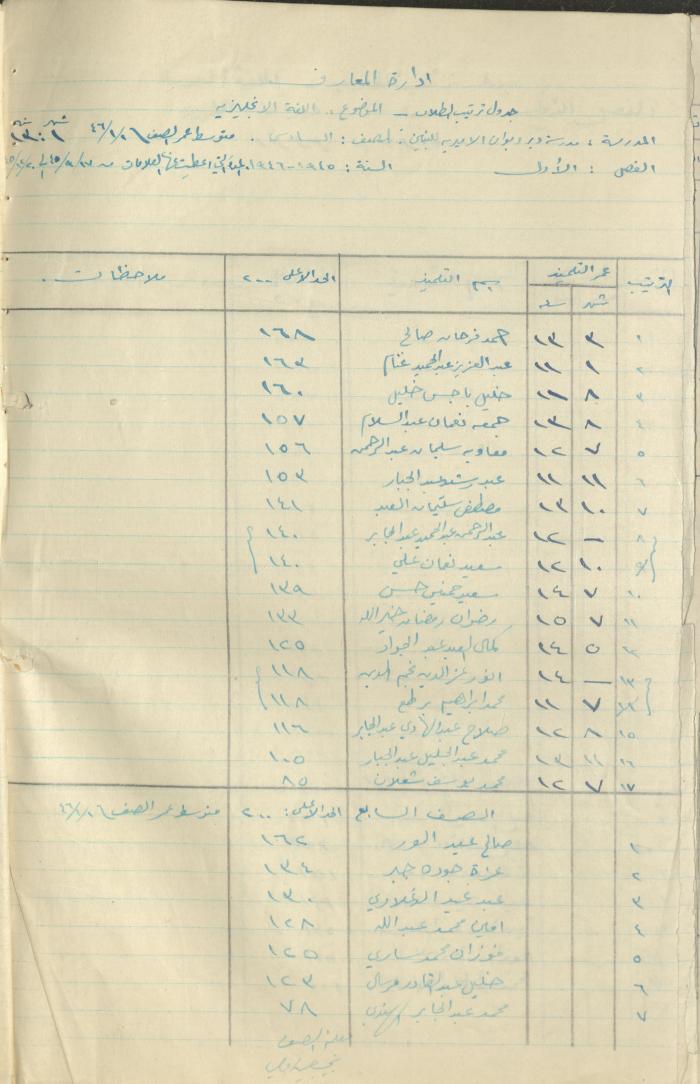 ادارة المعارف
جدول ترتيب الطلاب – الموضوع: اللغة الانجليزيه
المدرسة: مدرسة دير ديوان الاميرية للبنين. الصف: السادس. متوسط عمر الصف ٤٦/١/١
الفصل: الأول السنة: ١٩٤٥-١٩٤٦
الترتيب عمر التلميذ اسم التلميذ الحد الاعلى ٢٠٠ ملاحظات
شهر سنه
١ ٣ ١٣ حمد فرحان صالح ١٦٨
٢ ١ ١١ عبد العزيز عبد الحميد غنام ١٦٣
٣ ٨ ١١ خليل باجس خليل ١٦٠
٤ ٨ ١٣ جمعه نعمان عبد السلام ١٥٧
٥ ٧ ١٢ معاويه سليمان عبد الرحمن ١٥٦
٦ ١١ ١١ عبد رشيد عبد الجبار ١٥٣
٧ ١٠ ١٣ مصطفى سليمان العبد ١٤١
٨ — ١٢ عبد الرحمن عبد الحميد عبد الجابر ١٤٠
٩ ١٠ ١٢ سعيد نعمان علي ١٤٠
١٠ ٧ ١٤ سعيد حسني حسن ١٣٩
١١ ٧ ١٥ رضوان رمضان خير الله ١٣٣
١٢ ٥ ١٤ كمال العبد عبد الجواد ١٢٥
١٣ — ١٤ انور عز الدين نجم الدين ١١٨
٧ ١١ محمد ابراهيم ١١٨
١٥ ٨ ١٢ صلاح عبد الهادي عبد الجابر ١١٦
١٦ ١١ ١٣ محمد عبد الجليل عبد الجبار ١٠٥
١٧ ٧ ١٢ محمد يوسف شعلان ٨٥
الصف السابع الحد الاعلى: ٢٠٠ متوسط عمر الصف ٤٦/١/١
١ صالح عبد ١٦٢
٢ عزة جوده جبر ١٣٤
٣ عبد عبد ١٣٠
٤ امين محمد عبد الله ١٢٨
٥ فوزان محمد ساري ١٢٥
٦ خليل عبد القادر ١٢٣
٧ محمد عبد الجابر ٧٨